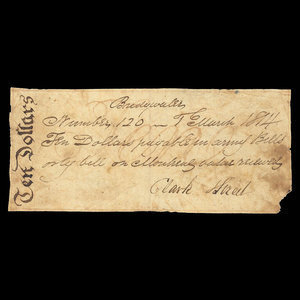 Ten Dollars
Bridgwater
Number 120 — 7 March 1814
Ten Dollars payable in army Bills
or by bill on Montreal value received
Clark